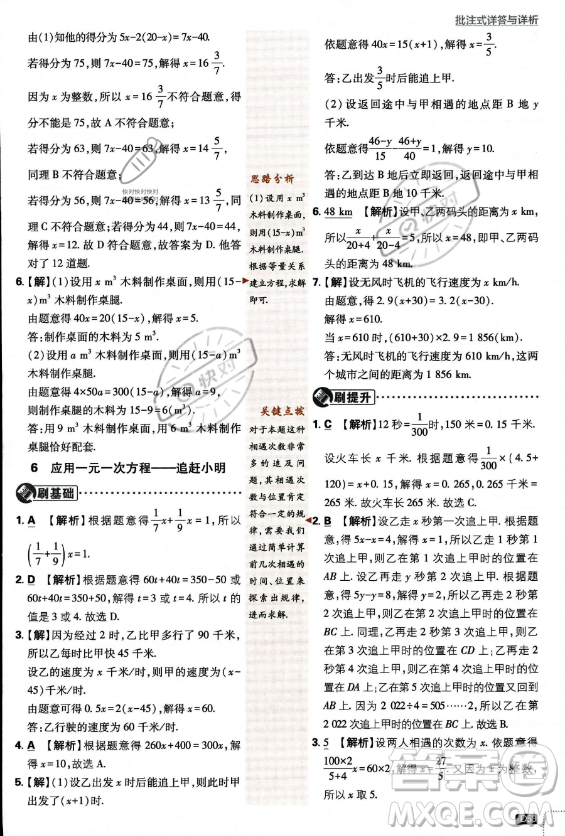 批注式详答与详析
由(1)知他的得分为 5x-2(20-x)= 7x-40.
若得分为 75,则 7x-40=75,解得 x=16 3/7.
因为 x 为整数,所以 x=16 3/7 不符合题意,
若得分为 75,故 A 不符合题意;
若得分为 63,则 7x-40=63,解得 x=14 5/7,
同理 B 不符合题意;
若得分为 56,则 7x-40=56,解得 x=13 5/7,同
理 C 不符合题意;若得分为 44,则 7x-40=
44,解得 x=12,符合题意,故答案为 D. 他答
对了 12 道题.
6.【解】(1)设用 x m³ 木料制作桌面,则用(15-
x) m³ 木料制作桌腿.
由题意得 40x=20(15-x),解得 x=5.
答:制作桌面的木料为 5 m³.
(2)设用 a m³ 木料制作桌面,则用(15-a) m³
木料制作桌腿.
由题意得 4×50a=300(15-a),解得 a=9,
则 15-a=15-9=6(m³).
答:用 9 m³ 木料制作桌面,用 6 m³ 木料制作
桌腿恰好配套.
6 应用一元一次方程——追赶小明
刷基础
1. A 【解析】根据题意得 1/7 x+ 1/9 x=1,所以
(1/7+1/9)x=1.
2. D 【解析】根据题意得 60t+40t=350-50 或
60t+40t=350+50,解得 t=3 或 t=4. 所以 t 的
值是 3 或 4. 故选 D.
3.【解】因为经过 2 小时,乙比甲多行了 90 千米,
所以乙每小时比甲快 45 千米.
设乙的速度为 x 千米/时,则甲的速度为(x-
45)千米/时.
由题意可得 0.5x=2(x-45),解得 x=60.
答:乙行驶的速度为 60 千米/时.
4.【解】根据题意得 260x+400=300x,解
得 x=10,故选 A.
5.【解】(1)设乙出发 x 时后能追上甲,
思路分析
(1)设用 x m³
木料制作桌面,
则用(15-x) m³
木料制作桌腿.
根据等量关系
建立方程,求解
即可.
关键点拨
对于本题这种
相遇次数非常
多的追及问
题,其相遇位
置常常是符
合一定的规
律,需要我们
通过简单计算
前几次相遇的
时间、位置来
探索出规律,
进而求解.
依题意得 40x=15(x+1),解得 x=3/5.
答:乙出发 3/5 时后能追上甲.
(2)设返回途中与甲相遇的地点距 B 地 y
千米.
依题意得 46-y/15=46+y/40+1,解得 y=10.
答:乙到达 B 地后立即返回,返回途中与甲相
遇的地点距 B 地 10 千米.
6. 48 km 【解析】设甲、乙两码头的距离为 x km,
所以 x/20+4+x/20-4=5,所以 x=48,即甲、乙两码
头的距离为 48 km.
7.【解】设无风时飞机的飞行速度为 x km/h,
由题意,得 2.9(x+30)=3.1(x-30).
解得 x=610.
当 x=610 时,(610+30)×2.9=1 856(km).
答:无风时飞机的飞行速度为 610 km/h,这两
个城市之间的距离为 1 856 km.
刷提升
1. C 【解析】12 秒=1/300 时,150 米=0.15 千米.
设火车长 x 千米. 根据题意得 1/300×(4.5+
120)=x+0.15,解得 x=0.265, 0.265 千米=
265 米. 故火车长 265 米. 故选 C.
2. B 【解析】设乙走 x 秒第一次追上甲. 根据题意,
得 5x-x=4,解得 x=1,所以乙走 1 秒第 1
次追上甲,则乙在第 1 次追上甲时的位置在
AB 上. 设乙再走 y 秒第二次追上甲. 根据题
意,得 5y-y=8,解得 y=2,所以乙再走 2 秒第
2 次追上甲,则乙在第 2 次追上甲时的位置在
BC 上. 同理,乙再走 2 秒第 3 次追上甲时的位
置在 CD 上;乙再走 2 秒第 4 次追上甲时的位
置在 DA 上;乙在第 5 次追上甲时的位置又回到
AB 上. 因为 2 022÷4=505……2,所以乙在第
2 022 次追上甲时的位置在 BC 上. 所以乙在第
2 022 次追上甲时的位置在 BC 上. 故选 B.
3. 5 【解析】设两人相遇的次数为 x. 依题意得
100×2/5+4 x=60×2,解得 x=27/5. 又因为 x 为整数,
所以 x 取 5.
快对
MXQE.COM